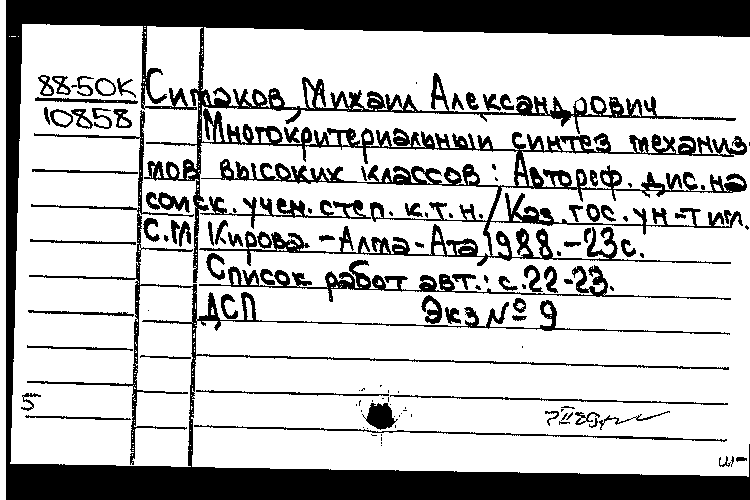 88-50К
10858
Ситаков, Михаил Александрович
Многокритериальный синтез механиз-
мов высоких классов : Автореф. дис. на
соиск. учен. степ. к.т.н. / Каз. гос. ун-т им.
С.М. Кирова. - Алма-Ата, 1988. - 23 с.
Список работ авт.: с. 22-23.
ДСП Экз № 9
5
ш-